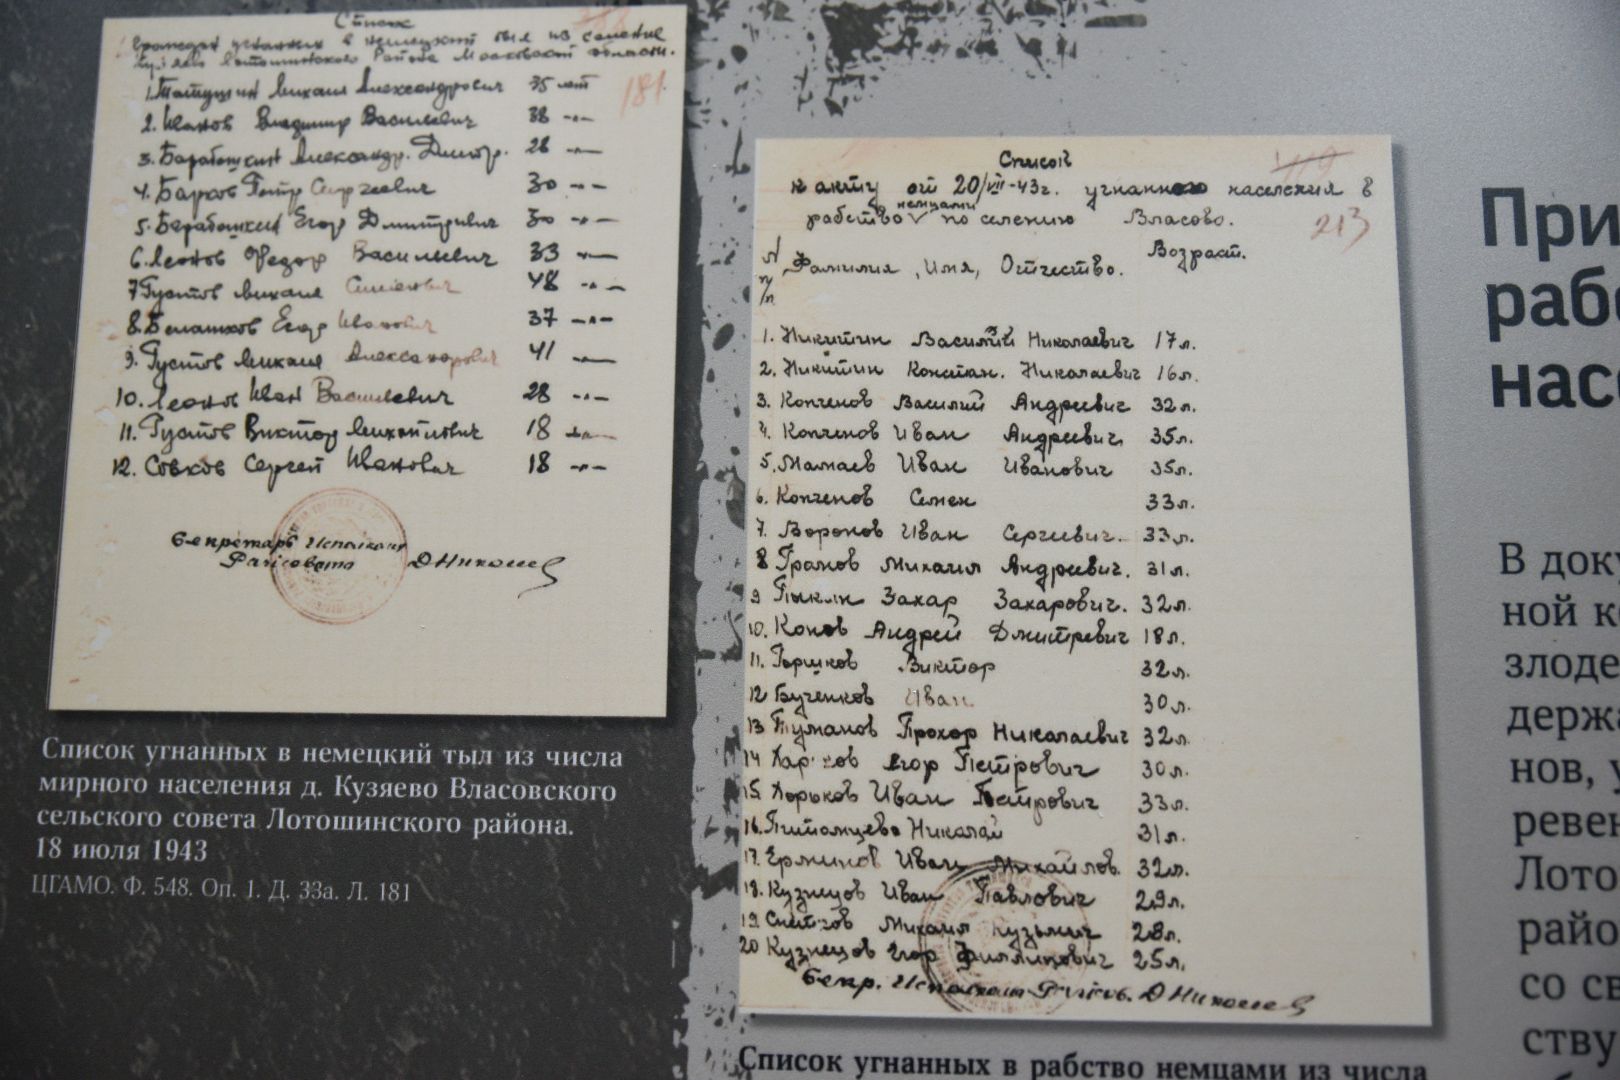 Список
граждан угнанных в немецкий тыл из селения
Лотошинского Района Московской области.
181
1. Матушкин Михаил Александрович 35 лет
2. Иванов Владимир Васильевич 38 -"-
3. Барабошкин Александр. Дмитр. 28 -"-
4. Барков Петр Сергеевич 30 -"-
5. Барабошкин Егор Дмитриевич 30 -"-
6. Леонов Федор Васильевич 33 -"-
7 Густов Михаил Семенович 48 -"-
8. Белашков Егор Иванович 37 -"-
9. Густов Михаил Александрович 41 -"-
10. Леонов Иван Васильевич 28 -"-
11. Густов Виктор Михайлович 18 -"-
12. Совков Сергей Иванович 18 -"-
Секретарь Исполкома
Райсовета
Список угнанных в немецкий тыл из числа
мирного населения д. Кузяево Власовского
сельского совета Лотошинского района.
18 июля 1943
ЦГАМО. Ф. 548. Оп. 1. Д. 33а. Л. 181
Список
к акту от 20/VII-43г. угнанного населения в
рабство немцами по селению Власово.
213
N п/п Фамилия, Имя, Отчество. Возраст.
1. Никитин Василий Николаевич 17л.
2. Никитин Констан. Николаевич 16л.
3. Копченов Василий Андреевич 32л.
4. Копченов Иван Андреевич. 35л.
5. Мамаев Иван Иванович 35л.
6. Копченов Семен 33л.
7. Воронов Иван Сергиевич. 33л.
8 Громов Михаил Андреевич. 31л.
9 Пыкин Захар Захарович. 32л.
10. Конов Андрей Дмитревич 18л.
11. Горшков Виктор 32л.
12 Бученков Иван 30л.
13 Туманов Прохор Николаевич 32л.
14 Егор Петрович 30л.
15. Хорьков Иван Петрович 33л.
16. Николай 31л.
17. Иван Михайлов. 32л.
18. Кузнецов Иван Павлович 29л.
19 Михаил Кузьмич 28л.
20 Кузнецов Егор Филлипович 25л.
Секр. Исполкома
Список угнанных в рабство немцами из числа
При
рабо
насе
В доку
ной к
злоде
держа
нов, у
ревен
Лото
райо
со св
ству